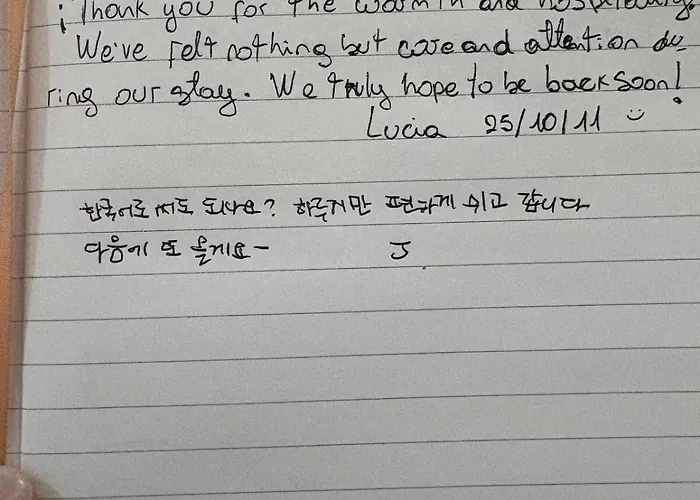 ¡Thank you for the warmth and hospitality.
We've felt nothing but care and attention du
ring our stay. We truly hope to be back soon!
Lucia 25/10/11 ☺
한국어로 써도 되나요? 하루지만 편하게 쉬고 갑니다
다음에 또 올게요~ J